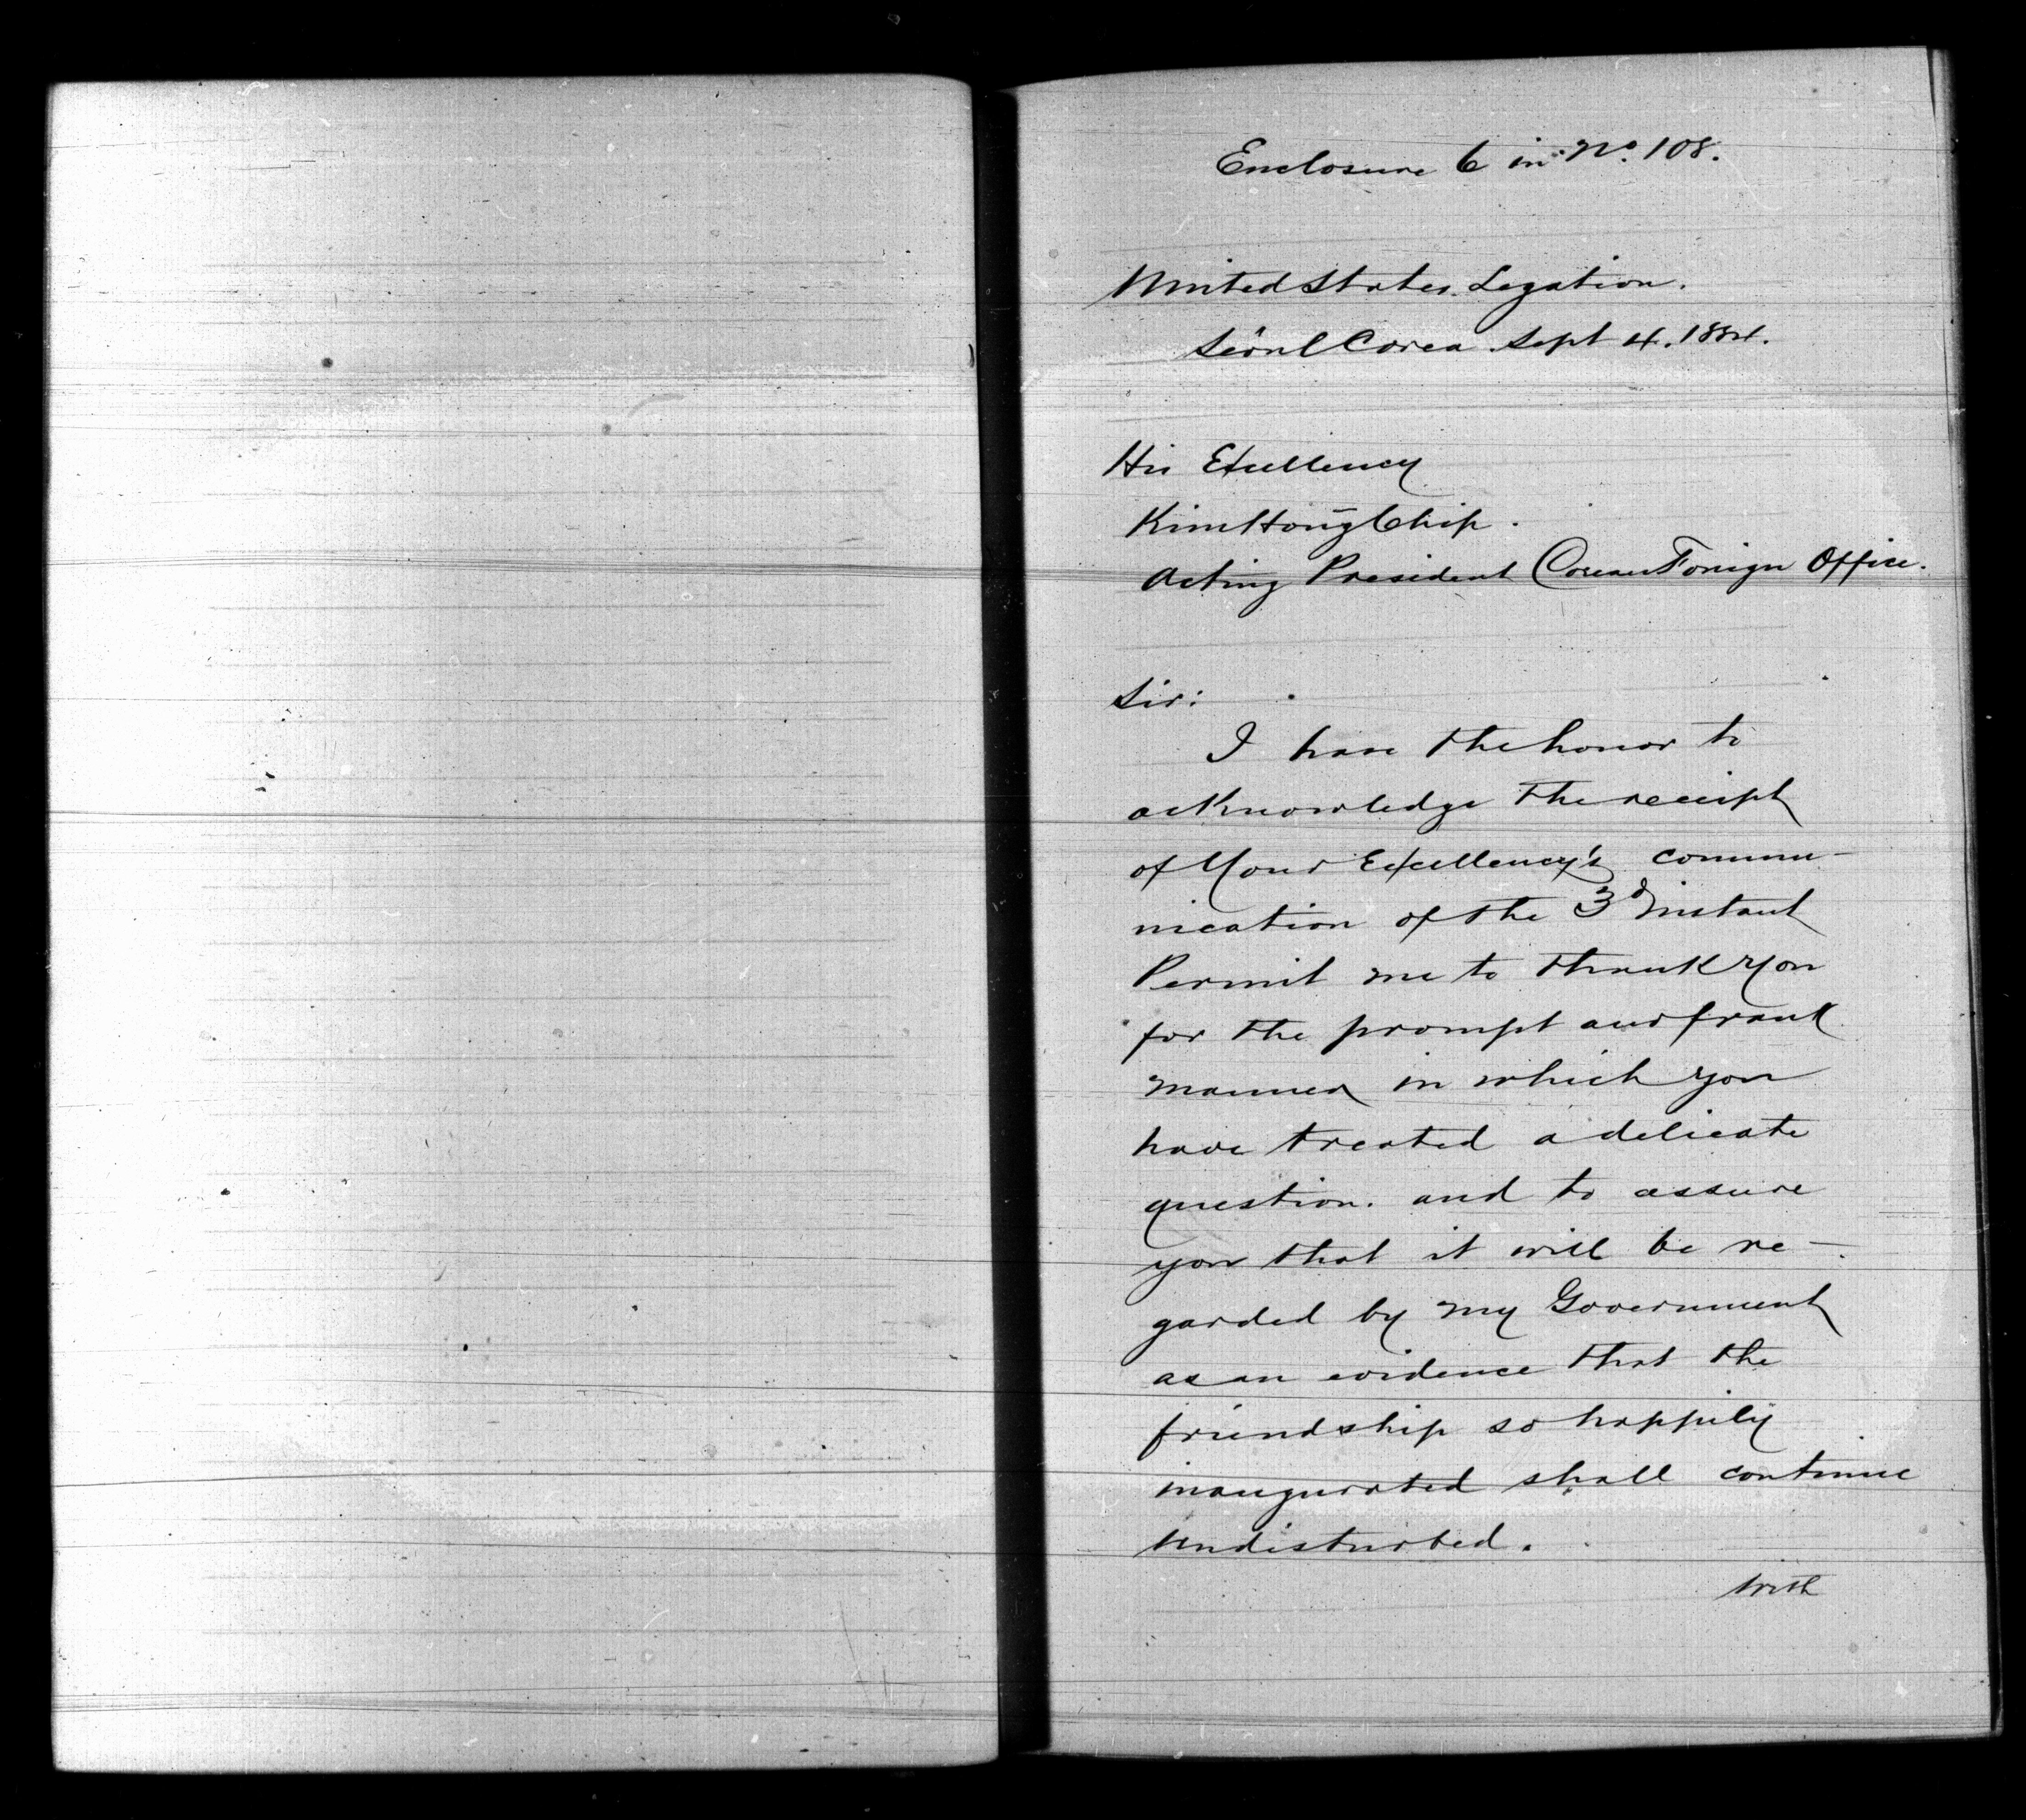 Enclosure 6 in No. 108.
United States Legation.
Söul Corea Sept 4. 1884.
His Excellency
Kim Hong Chip.
Acting President Corean Foreign Office.
Sir:
I have the honor to
acknowledge the receipt
of Your Excellency's commu-
nication of the 3d instant
Permit me to thank you
for the prompt and frank
manner in which you
have treated a delicate
question. and to assure
you that it will be re-
garded by my Government
as an evidence that the
friendship so happily
inaugurated shall continue
undisturbed.
With